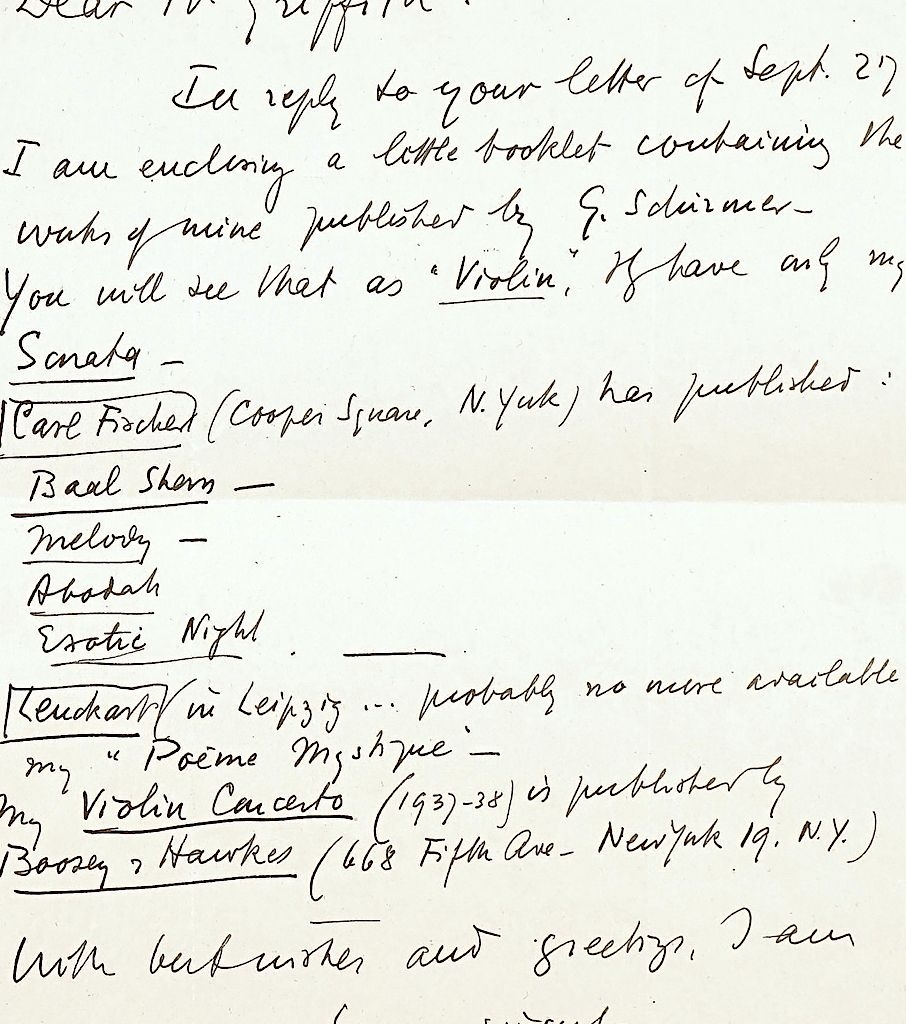 Dear Mr Griffith :
In reply to your letter of Sept. 27
I am enclosing a little booklet containing the
works of mine published by G. Schirmer -
You will see that as "Violin", they have only my
Sonata -
Carl Fischer (Cooper Square, N. York) has published :
Baal Shem -
Melody -
Abodah
Exotic Night
Leuckart (in Leipzig ... probably no more available
my "Poème Mystique" -
My Violin Concerto (1937-38) is published by
Boosey & Hawkes (668 Fifth Ave - New York 19. N.Y.)
With best wishes and greetings, I am